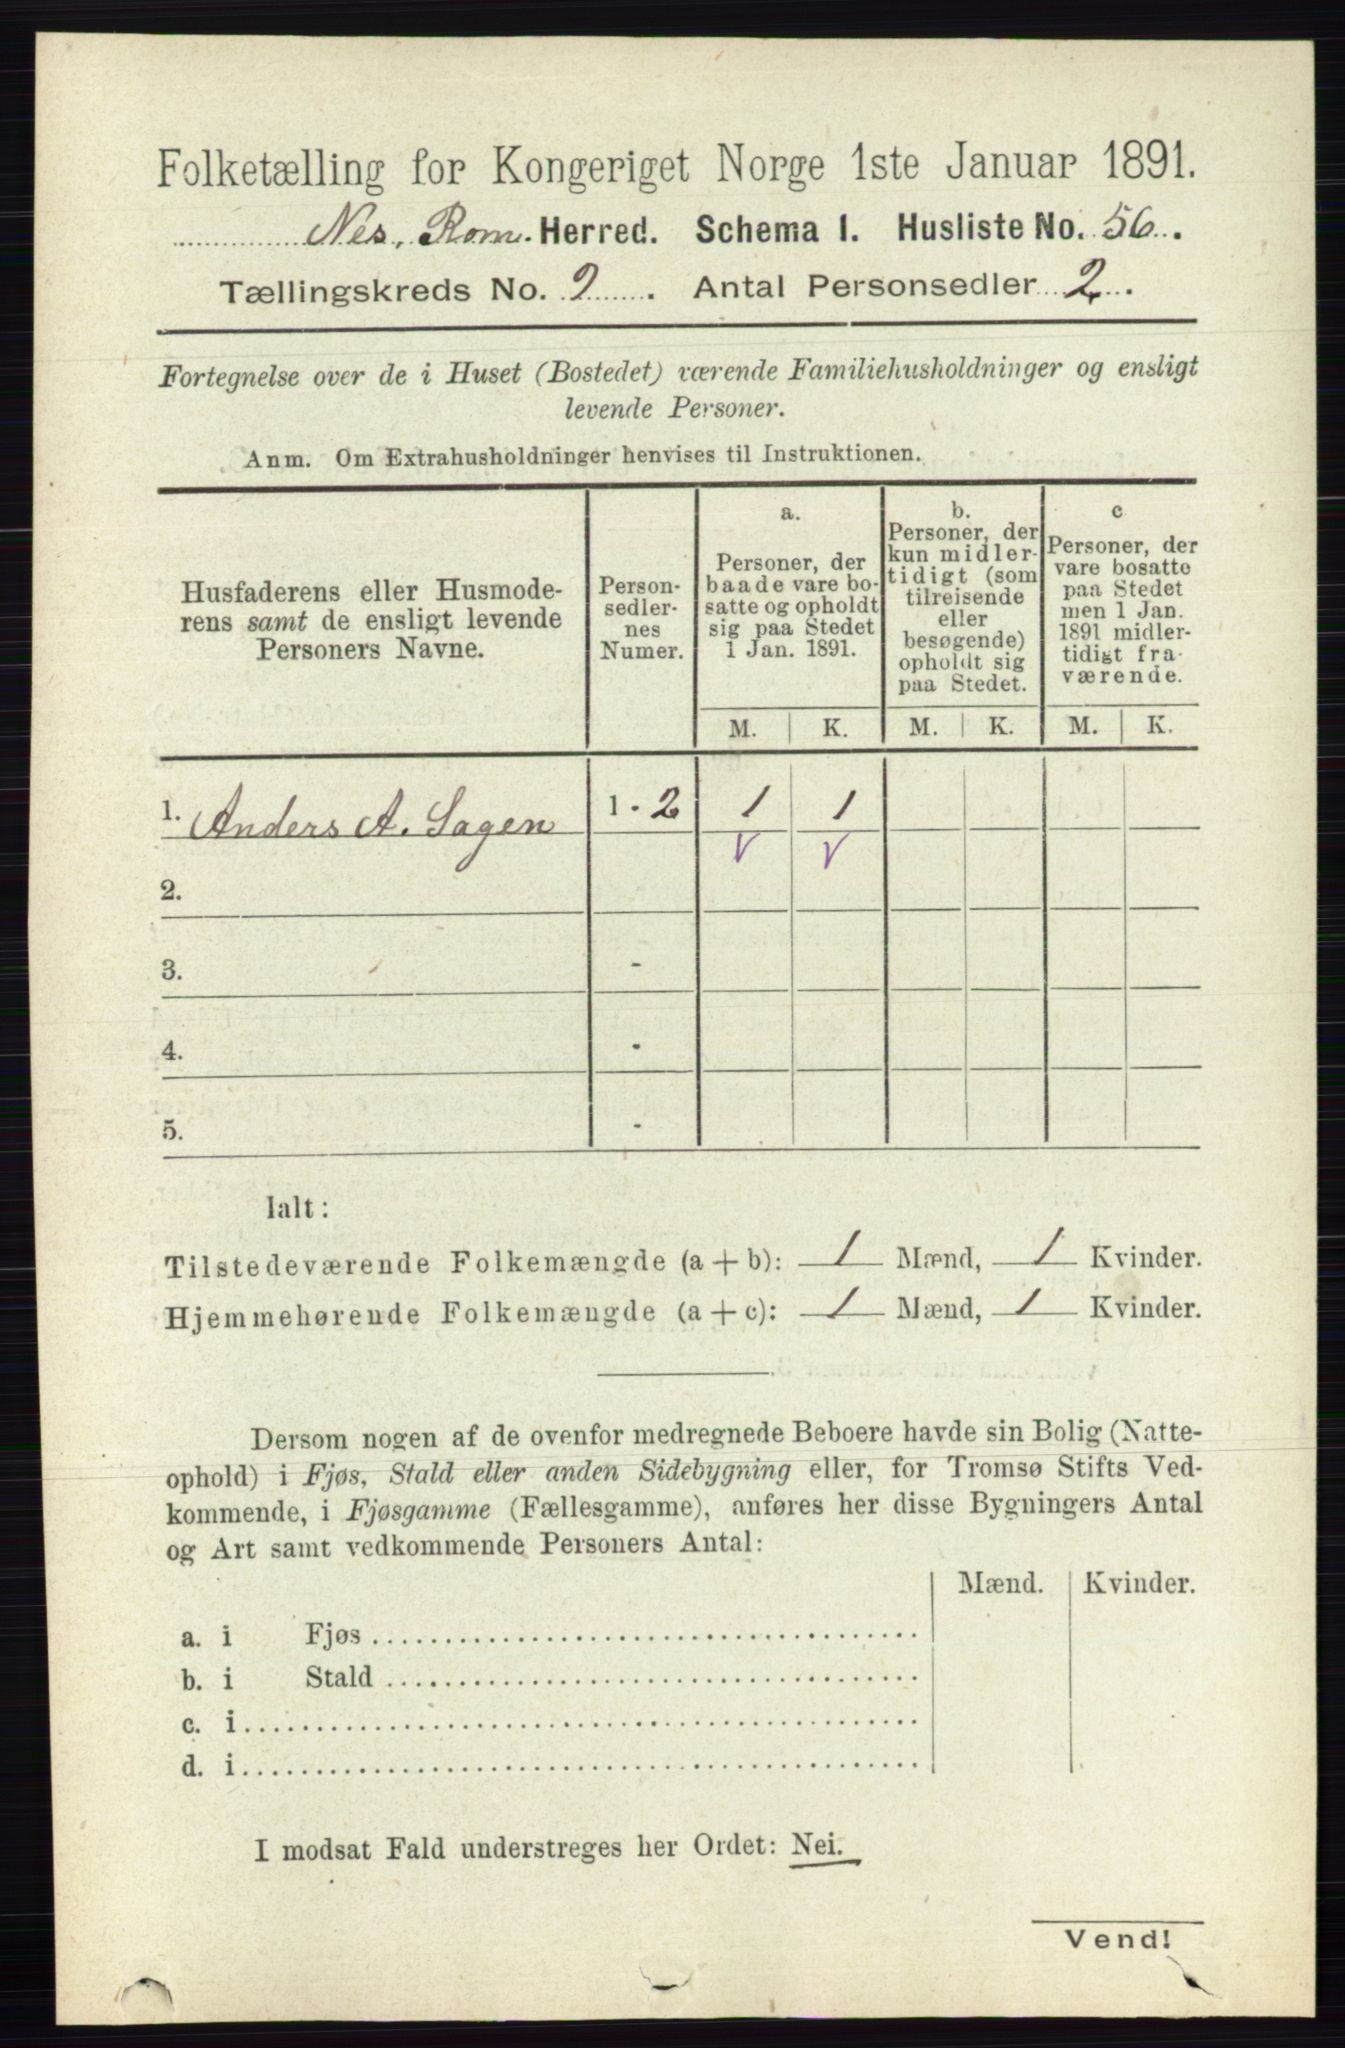 Folketælling for Kongeriget Norge 1ste Januar 1891.
Nes, Rom. Herred. Schema I. Husliste No. 56.
Tællingskreds No. 2. Antal Personsedler 2.
Fortegnelse over de i Huset (Bostedet) værende Familiehusholdninger og ensligt
levende Personer.
Anm. Om Extrahusholdninger henvises til Instruktionen.
Husfaderens eller Husmode-
rens samt de ensligt levende
Personers Navne.
Person-
sedler-
nes
Numer.
a.
Personer, der
baade vare bo-
satte og opholdt
sig paa Stedet
1 Jan. 1891.
b.
Personer, der
kun midler-
tidigt (som
tilreisende
eller
besøgende)
opholdt sig
paa Stedet.
c
Personer, der
vare bosatte
paa Stedet
men 1 Jan.
1891 midler-
tidigt fra-
værende.
M. K. M. K. M. K.
1. Anders A. Sagen 1 - 2 1 1
2.
3. -
4. -
5. -
Ialt:
Tilstedeværende Folkemængde (a + b): 1 Mænd, 1 Kvinder.
Hjemmehørende Folkemængde (a + c): 1 Mænd, 1 Kvinder.
Dersom nogen af de ovenfor medregnede Beboere havde sin Bolig (Natte-
ophold) i Fjøs, Stald eller anden Sidebygning eller, for Tromsø Stifts Ved-
kommende, i Fjøsgamme (Fællesgamme), anføres her disse Bygningers Antal
og Art samt vedkommende Personers Antal:
Mænd. Kvinder.
a. i Fjøs
b. i Stald
c. i
d. i
I modsat Fald understreges her Ordet: Nei.
Vend!